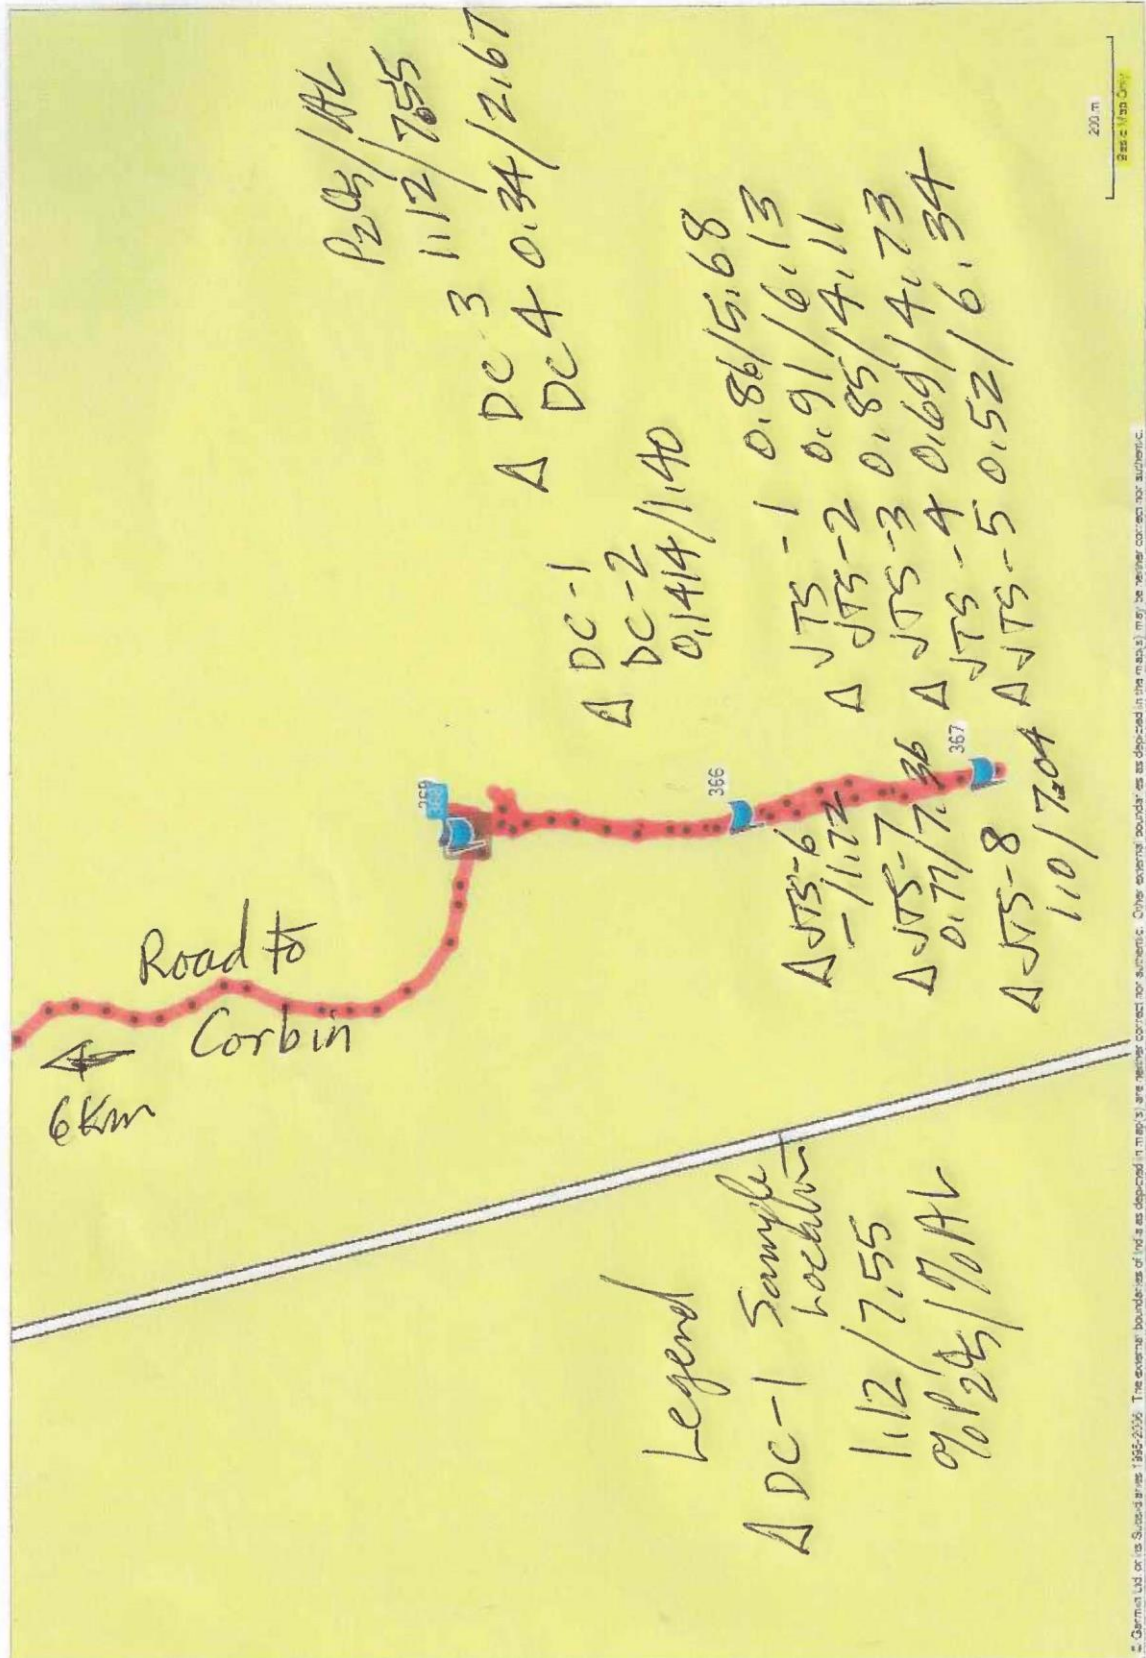 Road to
Corbin
6 Km
P2O5/AL
Δ DC-3 1.12/7.55
DC4 0.34/2.67
Δ DC-1
DC-2
0.1414/1.40
Δ JTS-1 0.86/5.68
JTS-2 0.91/6.13
Δ JTS-3 0.85/4.11
JTS-4 0.69/4.73
Δ JTS-5 0.52/6.34
Δ JTS-6
-/1.72
Δ JTS-7
0.77/7.36
Δ JTS-8
1.10/7.04
368
366
367
Legend
Δ DC-1 Sample
Location
1.12/7.55
%P2O5/%AL
200 m
Basic Map Only
© Garmin Ltd or its Subsidiaries 1995-2006 The external boundaries of India as depicted in map(s) are neither correct nor authentic. Other external boundaries as depicted in the map(s) may be neither correct nor authentic.